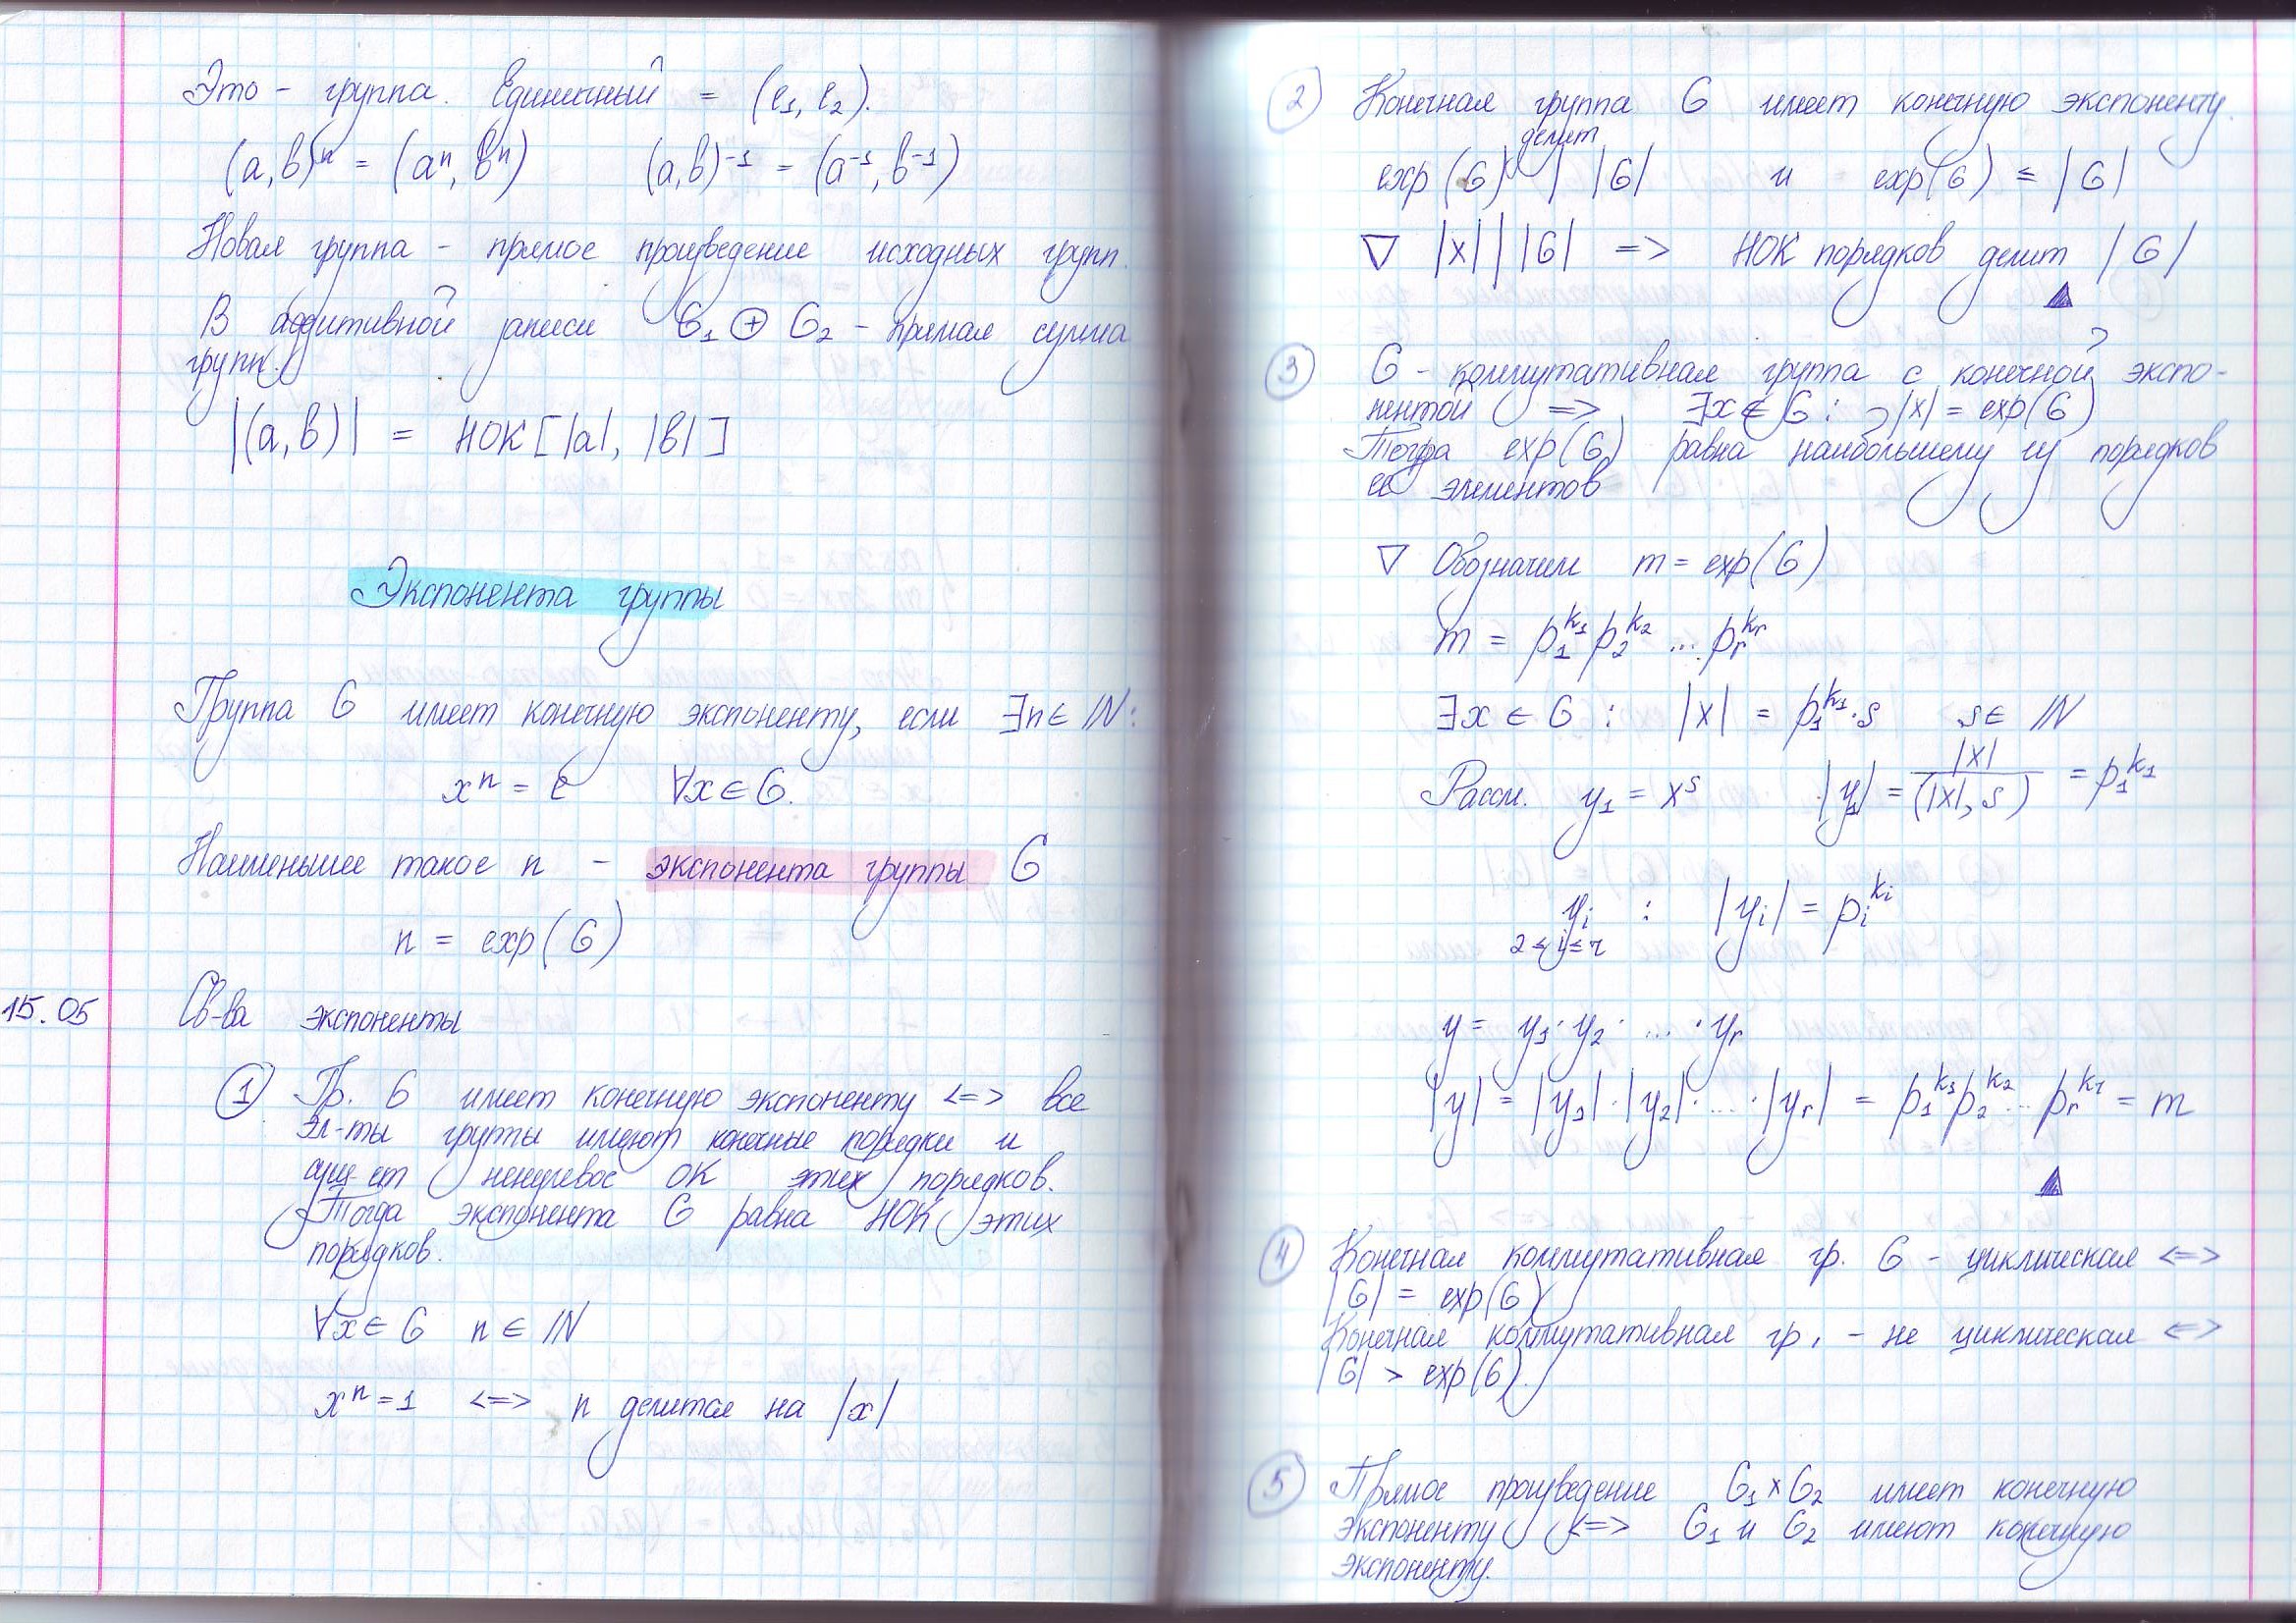 Это - группа. Единичный = (e₁, e₂).
(a,b)ⁿ = (aⁿ, bⁿ) (a,b)⁻¹ = (a⁻¹, b⁻¹)
Новая группа - прямое произведение исходных групп.
В аддитивной записи G₁ ⊕ G₂ - прямая сумма
групп.
|(a,b)| = НОК[|a|, |b|]
Экспонента группы
Группа G имеет конечную экспоненту, если ∃n ∈ ℕ:
xⁿ = e ∀x ∈ G.
Наименьшее такое n - экспонента группы G
n = exp(G)
15.05 Св-ва экспоненты
① Гр. G имеет конечную экспоненту <=> все
эл-ты группы имеют конечные порядки и
сущ-ет ненулевое ОК этих порядков.
Тогда экспонента G равна НОК этих
порядков.
∀x ∈ G n ∈ ℕ
xⁿ = 1 <=> n делится на |x|
② Конечная группа G имеет конечную экспоненту.
делит
exp(G) | |G| и exp(G) ≤ |G|
▽ |x| | |G| => НОК порядков делит |G|
▲
③ G - коммутативная группа с конечной экспо-
нентой => ∃x ∈ G : |x| = exp(G)
Тогда exp(G) равна наибольшему из порядков
её элементов
▽ Обозначим m = exp(G)
m = p₁^k₁ p₂^k₂ ... pᵣ^kᵣ
∃x ∈ G : |x| = p₁^k₁ · s s ∈ ℕ
Рассм. y₁ = xˢ |y₁| = |x| / (|x|, s) = p₁^k₁
yᵢ : |yᵢ| = pᵢ^kᵢ
2 ≤ i ≤ r
y = y₁ · y₂ · ... · yᵣ
|y| = |y₁| · |y₂| · ... · |yᵣ| = p₁^k₁ p₂^k₂ ... pᵣ^kᵣ = m
▲
④ Конечная коммутативная гр. G - циклическая <=>
|G| = exp(G)
Конечная коммутативная гр. - не циклическая <=>
|G| > exp(G).
⑤ Прямое произведение G₁ × G₂ имеет конечную
экспоненту <=> G₁ и G₂ имеют конечную
экспоненту.